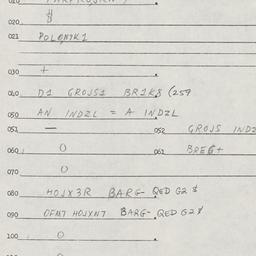 020 $
021 POLONIK1
030 +
040 D1 GROJS1 BR1K$ (259
050 AN INDZL = A INDZL
051 — 052 GROJS INDZ
060 0 061 BREG+
070 0
080 HOJX3R BARG- QED G2 $
090 OFM7 HOJXN7 BARG- QED G2 $
100 0